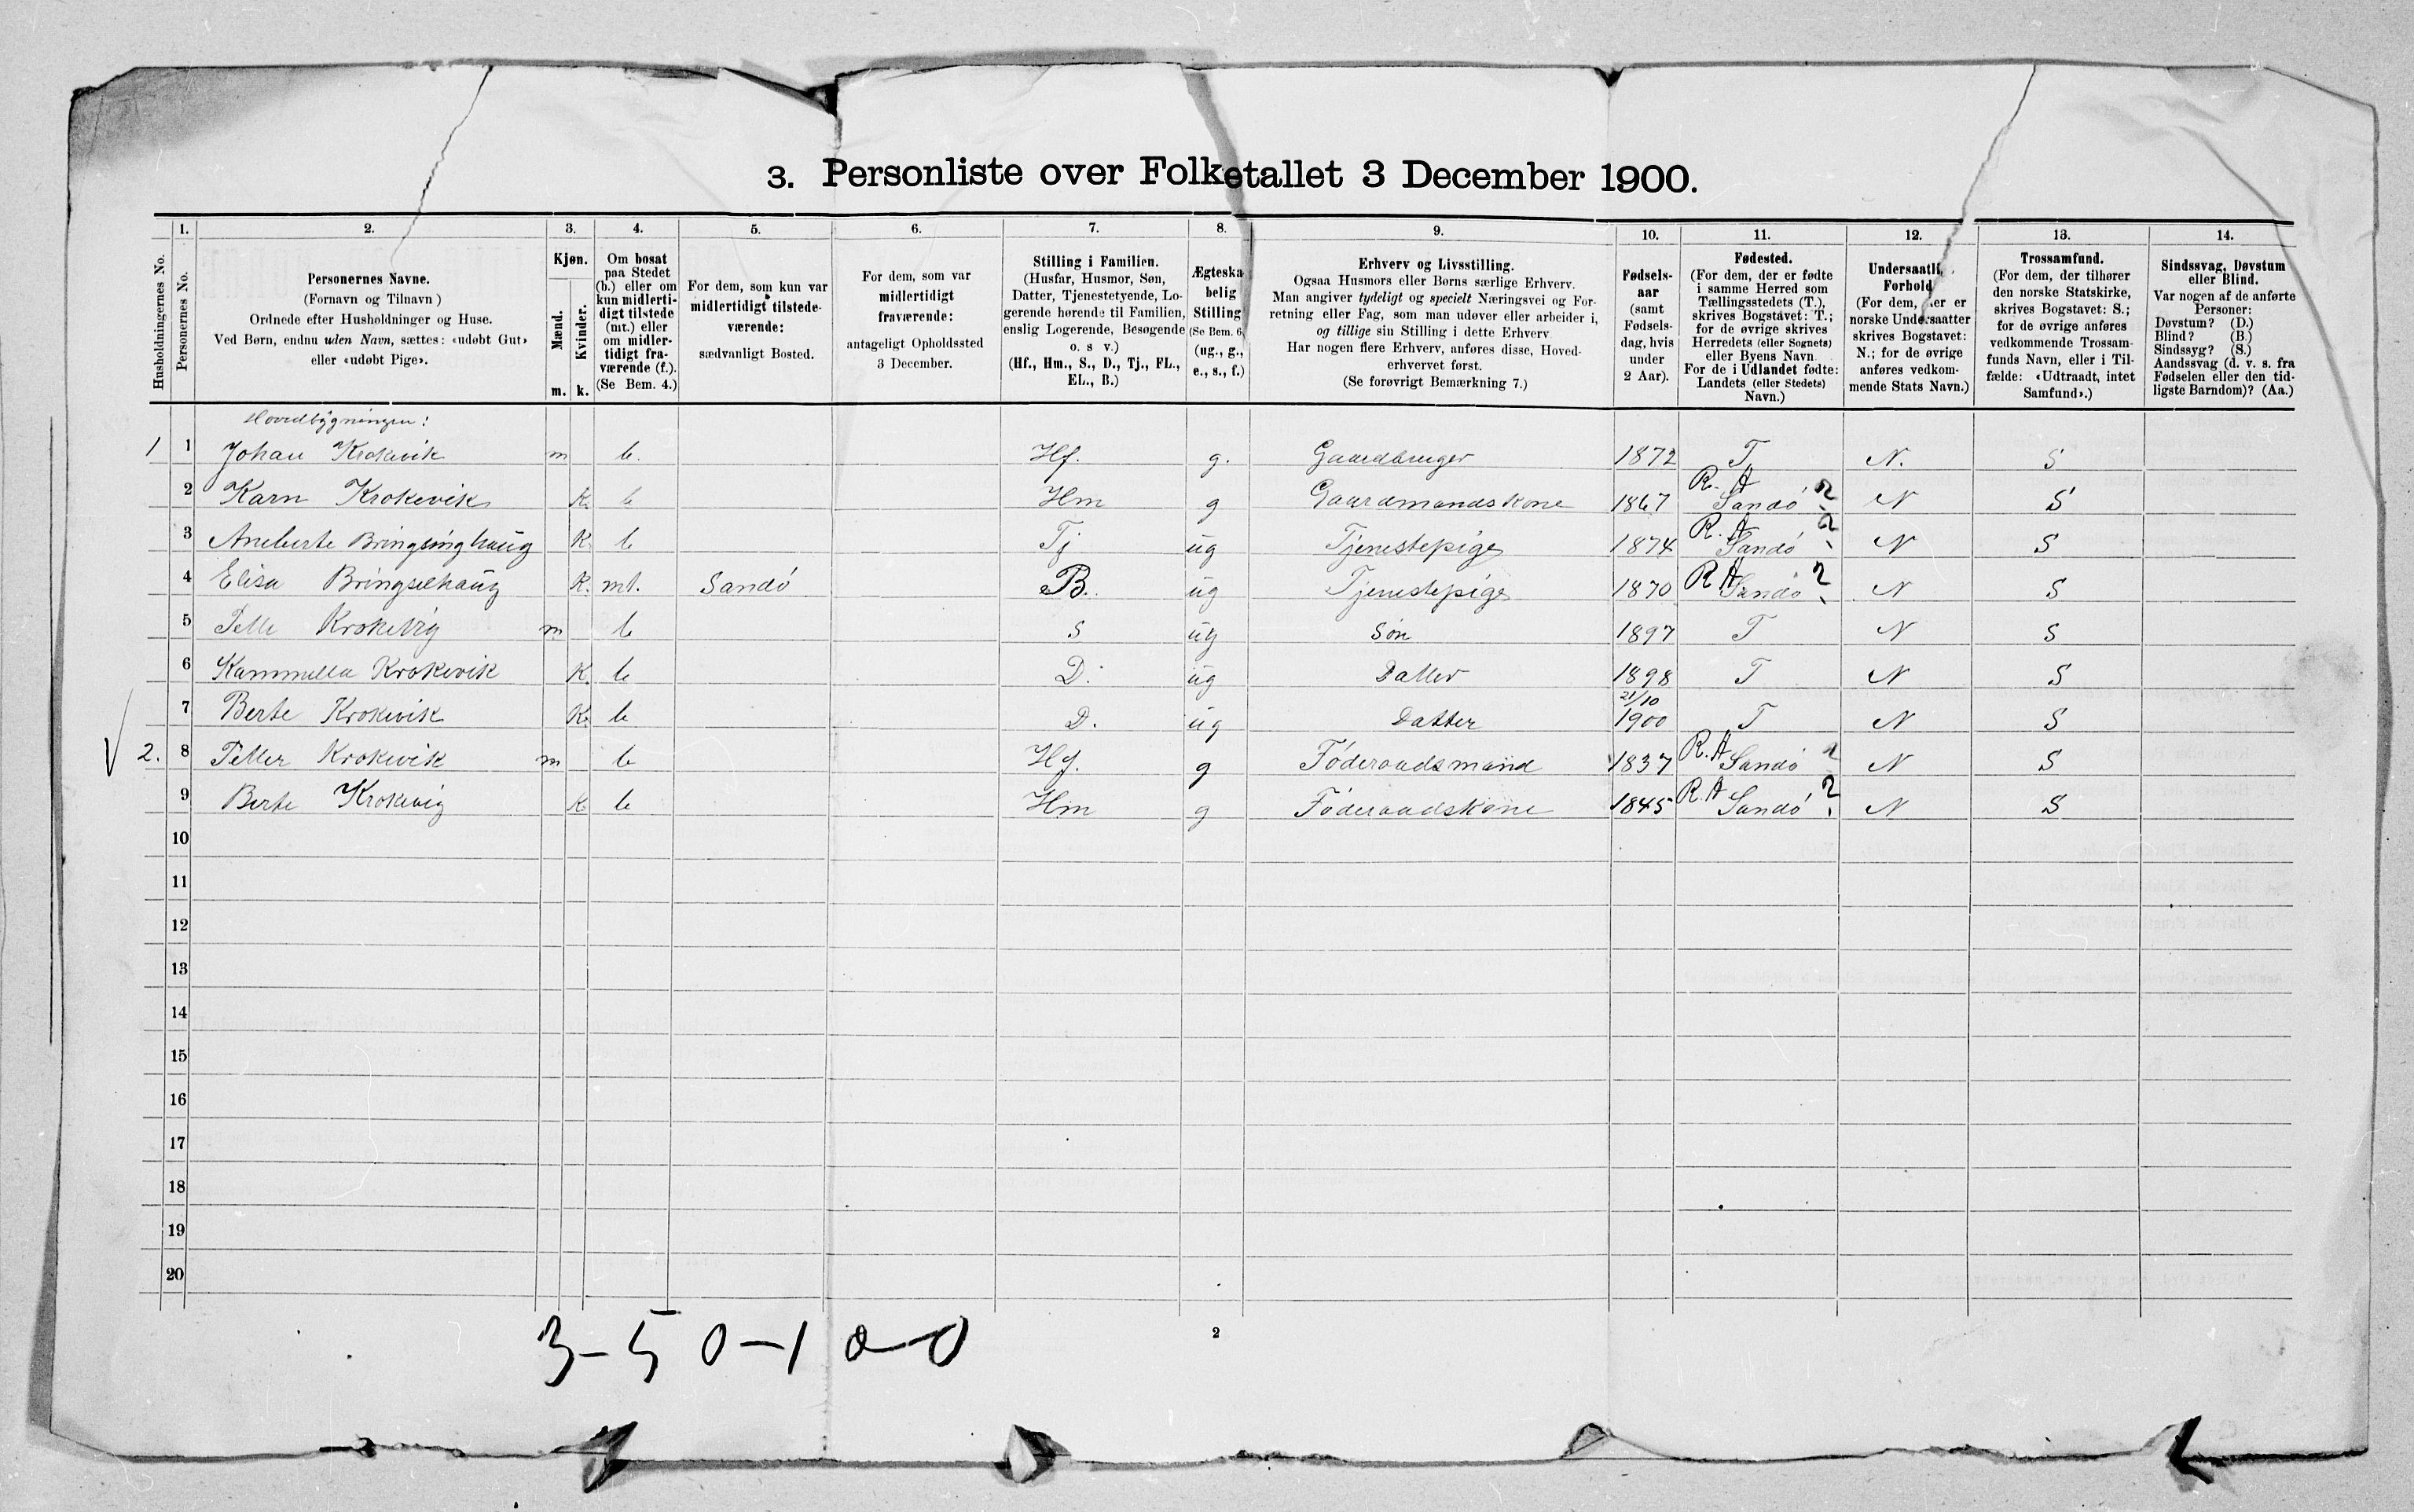 3. Personliste over Folketallet 3 December 1900.
1. 2. 3. 4. 5. 6. 7. 8. 9. 10. 11. 12. 13. 14.
Husholdningernes No.
Personernes No.
Personernes Navne.
(Fornavn og Tilnavn)
Ordnede efter Husholdninger og Huse.
Ved Børn, endnu uden Navn, sættes: «udøbt Gut»
eller «udøbt Pige».
Kjøn.
Mænd.
Kvinder.
m. k.
Om bosat
paa Stedet
(b.) eller om
kun midlerti-
digt tilstede
(mt.) eller
om midler-
tidigt fra-
værende (f.).
(Se Bem. 4.)
For dem, som kun var
midlertidigt tilstede-
værende:
sædvanligt Bosted.
For dem, som var
midlertidigt
fraværende:
antageligt Opholdssted
3 December.
Stilling i Familien.
(Husfar, Husmor, Søn,
Datter, Tjenestetyende, Lo-
gerende hørende til Familien,
enslig Logerende, Besøgende
o. s v.)
(Hf., Hm., S., D., Tj., FL.,
EL., B.)
Ægteska
belig
Stilling
(Se Bem. 6
(ug., g.,
e., s., f.)
Erhverv og Livsstilling.
Ogsaa Husmors eller Børns særlige Erhverv.
Man angiver tydeligt og specielt Næringsvei og For-
retning eller Fag, som man udøver eller arbeider i,
og tillige sin Stilling i dette Erhverv
Har nogen flere Erhverv, anføres disse, Hoved-
erhvervet først.
(Se forøvrigt Bemærkning 7.)
Fødsels-
aar
(samt
Fødsels-
dag, hvis
under
2 Aar).
Fødested.
(For dem, der er fødte
i samme Herred som
Tællingsstedets (T.),
skrives Bogstavet: T.;
for de øvrige skrives
Herredets (eller Sognets)
eller Byens Navn
For de i Udlandet fødte:
Landets (eller Stedets)
Navn.)
Undersaatli.
Forhold
(For dem, der er
norske Undersaatter
skrives Bogstavet:
N.; for de øvrige
anføres vedkom-
mende Stats Navn.)
Trossamfund.
(For dem, der tilhører
den norske Statskirke,
skrives Bogstavet: S.;
for de øvrige anføres
vedkommende Trossam-
funds Navn, eller i Til-
fælde: «Udtraadt, intet
Samfund».)
Sindssvag, Døvstum
eller Blind.
Var nogen af de anførte
Personer:
Døvstum? (D.)
Blind? (B.)
Sindssyg? (S.)
Aandssvag (d. v. s. fra
Fødselen eller den tid-
ligste Barndom)? (Aa.)
Hovedbygningen:
1 1 Johan Krokevik m b. Hf. g. Gaardbruger 1872 T N. S
2 Karn Krokevik K. b Hm g Gaardmandskone 1867 R. A Sandö ? N S
3 Aneberte Bringsinghaug K. b Tj ug Tjenestepige 1874 R. A Sandö ? N S
4 Elisa Bringselhaug K. mt. Sandö B. ug Tjenestepige 1870 R A Sandö ? N S
5 Pette Krokevig m b S ug Søn 1897 T N S
6 Kammilla Krokevik K. b D. ug Datter 1898 T N S
7 Berte Krokevik K. b D. ug Datter 21/10 1900 T N S
2. 8 Petter Krokevik m b Hf. g Föderaadsmand 1837 R. A Sandö ? N S
9 Berte Krokevig K b Hm g Föderaadskone 1845 R. A Sandö ? N S
10
11
12
13
14
15
16
17
18
19
20
3-5 0-1 0-0
2